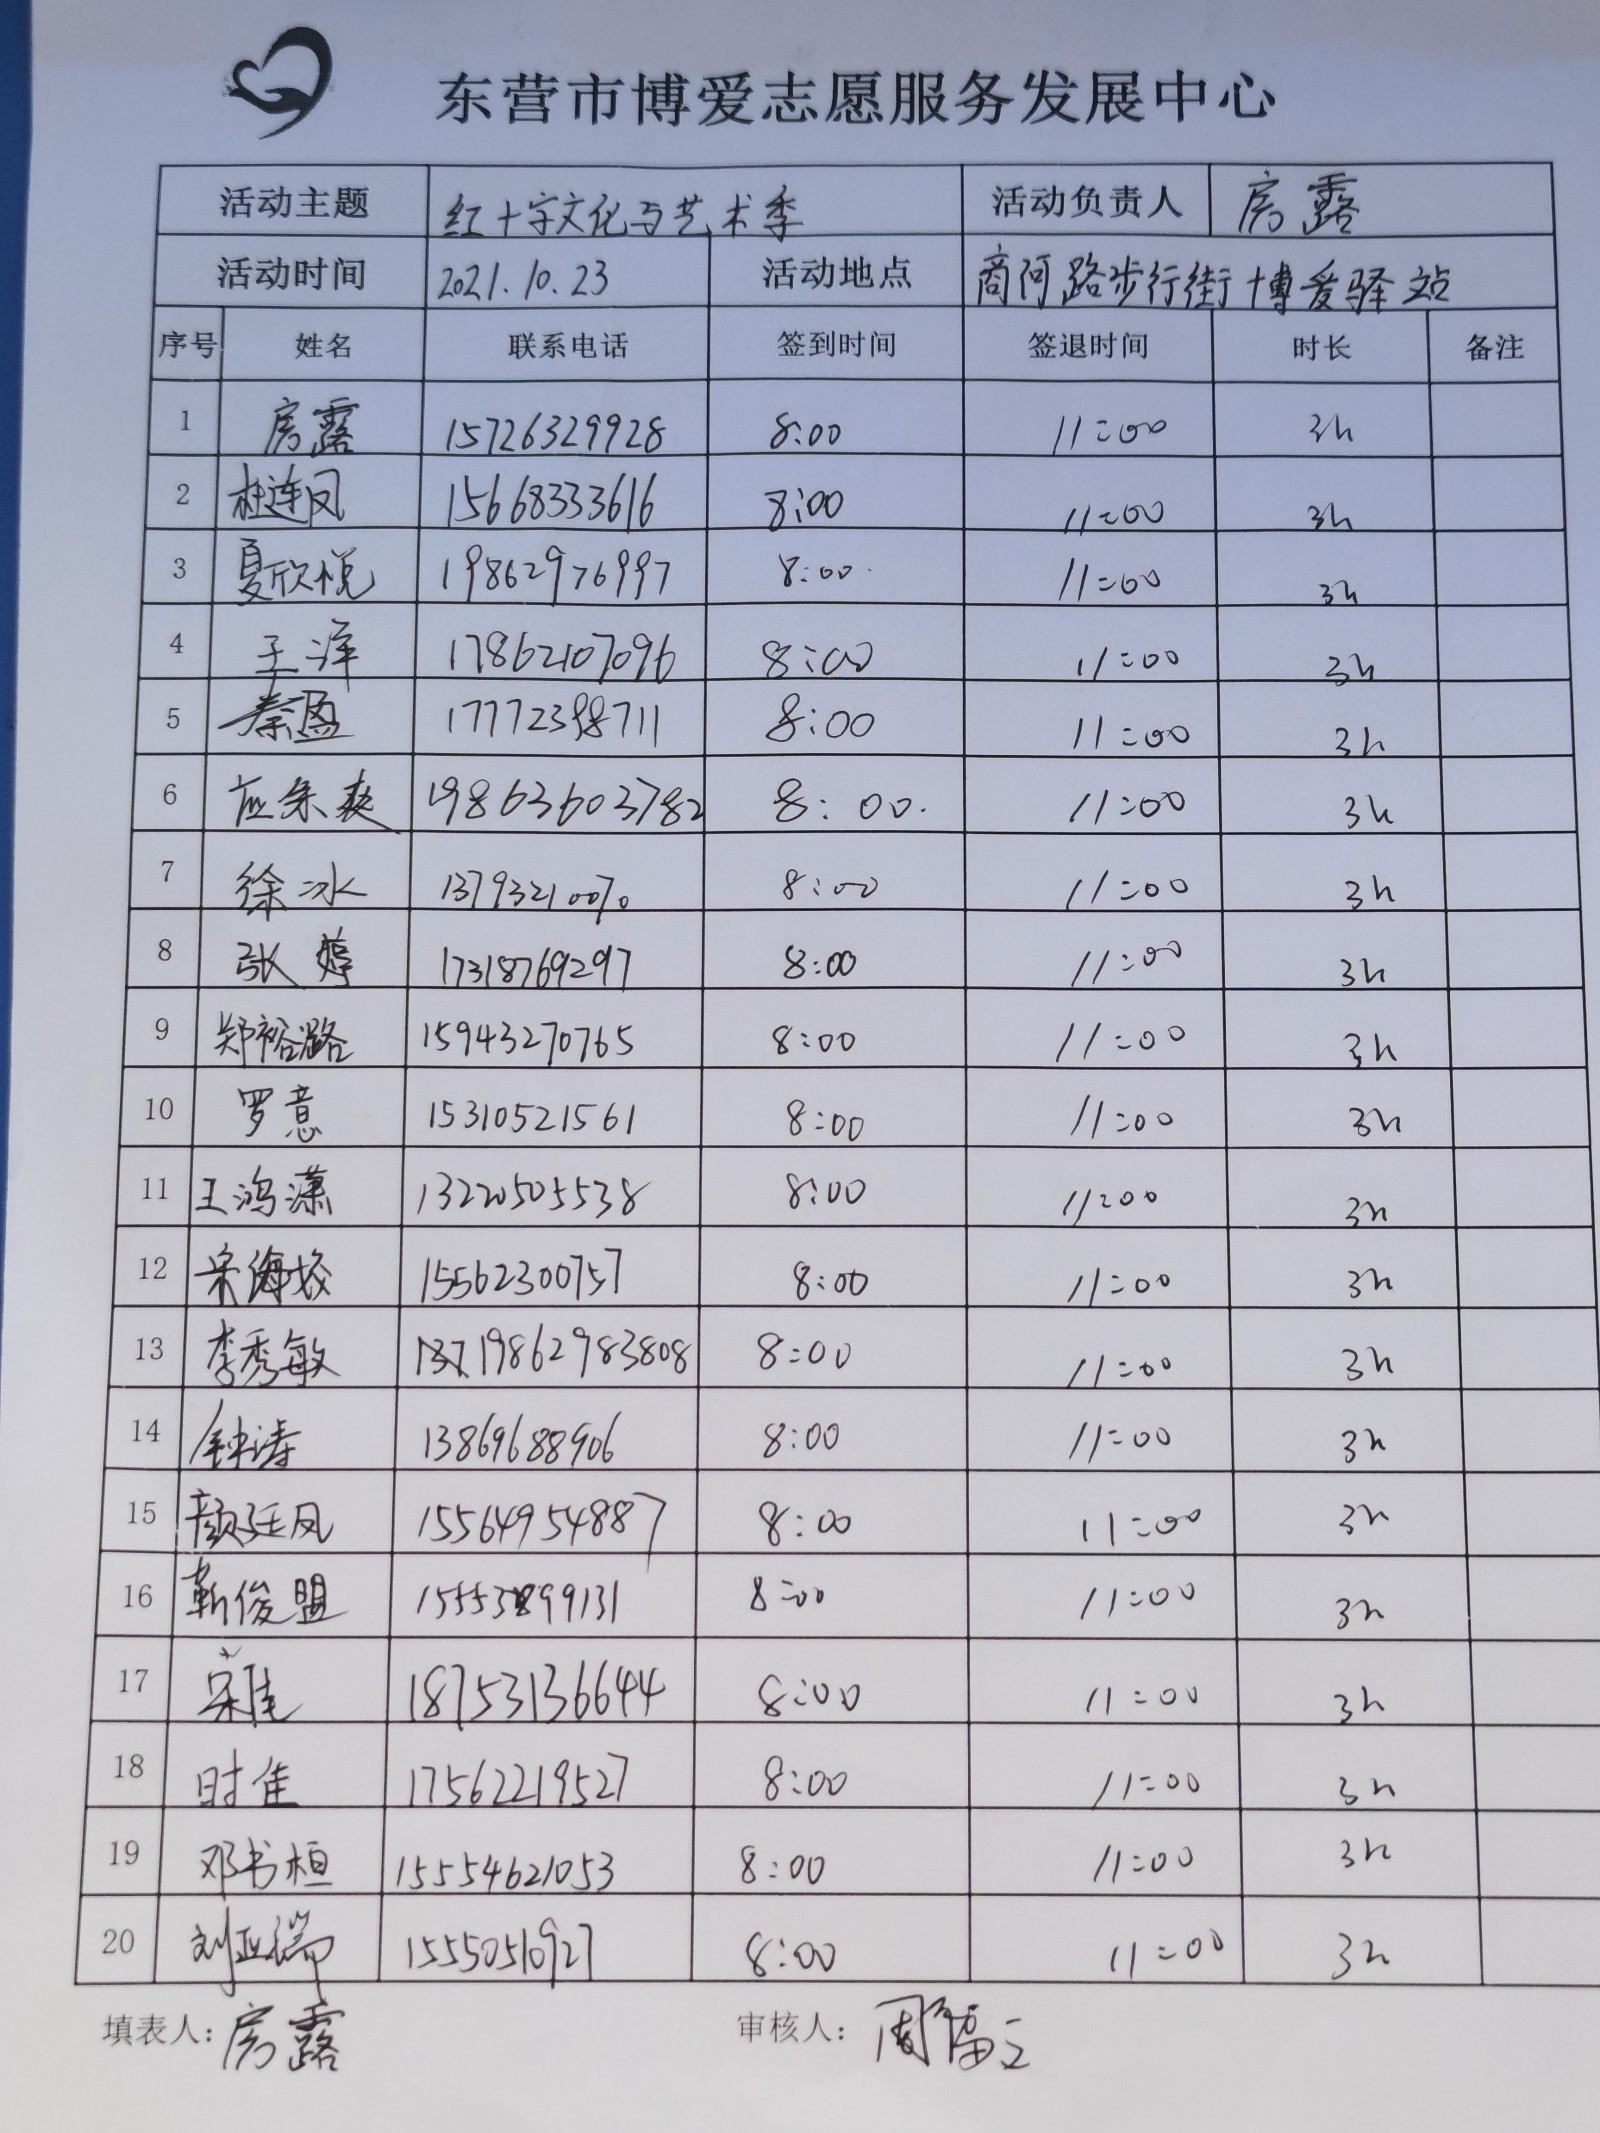 东营市博爱志愿服务发展中心
活动主题 红十字文化与艺术季 活动负责人 房露
活动时间 2021.10.23 活动地点 商河路步行街博爱驿站
序号 姓名 联系电话 签到时间 签退时间 时长 备注
1 房露 15726329928 8:00 11:00 3h
2 杜连凤 15668333616 8:00 11:00 3h
3 夏欣悦 19862976997 8:00 11:00 3h
4 王洋 17862107096 8:00 11:00 3h
5 秦盈 17772398711 8:00 11:00 3h
6 19863603782 8:00 11:00 3h
7 徐冰 13793210070 8:00 11:00 3h
8 张婷 17318769297 8:00 11:00 3h
9 郑裕璐 15943270765 8:00 11:00 3h
10 罗意 15310521561 8:00 11:00 3h
11 王鸿潇 13220505538 8:00 11:00 3h
12 宋海姣 15562300757 8:00 11:00 3h
13 李秀敏 19862983808 8:00 11:00 3h
14 钟涛 13869688906 8:00 11:00 3h
15 颜廷凤 15564954887 8:00 11:00 3h
16 靳俊盟 15553899131 8:00 11:00 3h
17 宋佳 18753136644 8:00 11:00 3h
18 时佳 17562219527 8:00 11:00 3h
19 邓书桓 15554621053 8:00 11:00 3h
20 刘亚瑞 15550510927 8:00 11:00 3h
填表人：房露 审核人：周